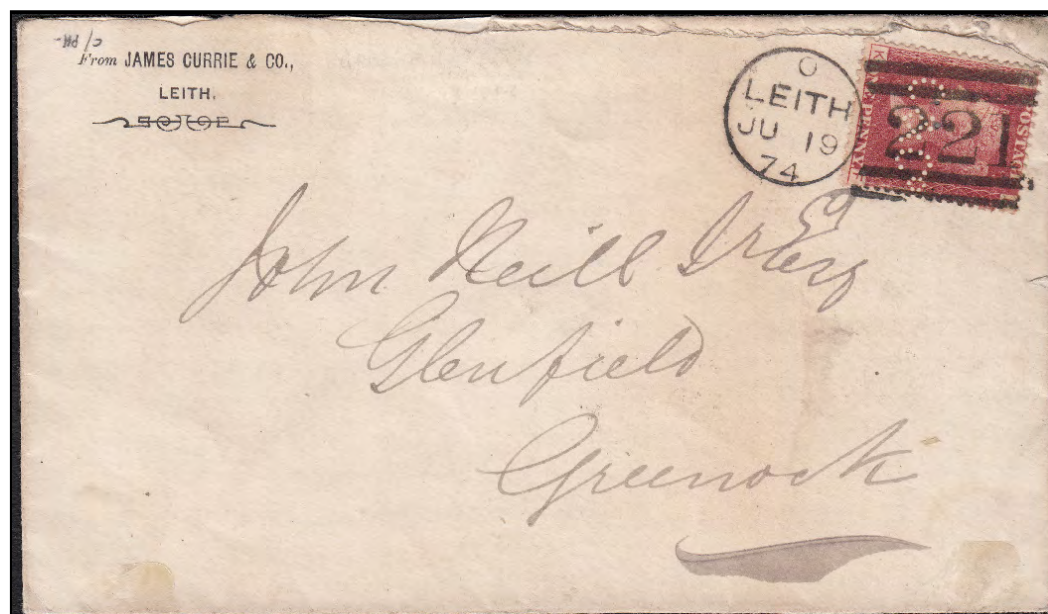 From JAMES CURRIE & CO.,
LEITH.
O
LEITH
JU 19
74
221
PENNY
POSTAGE
John Neill Jr Esq
Glenfield
Greenock